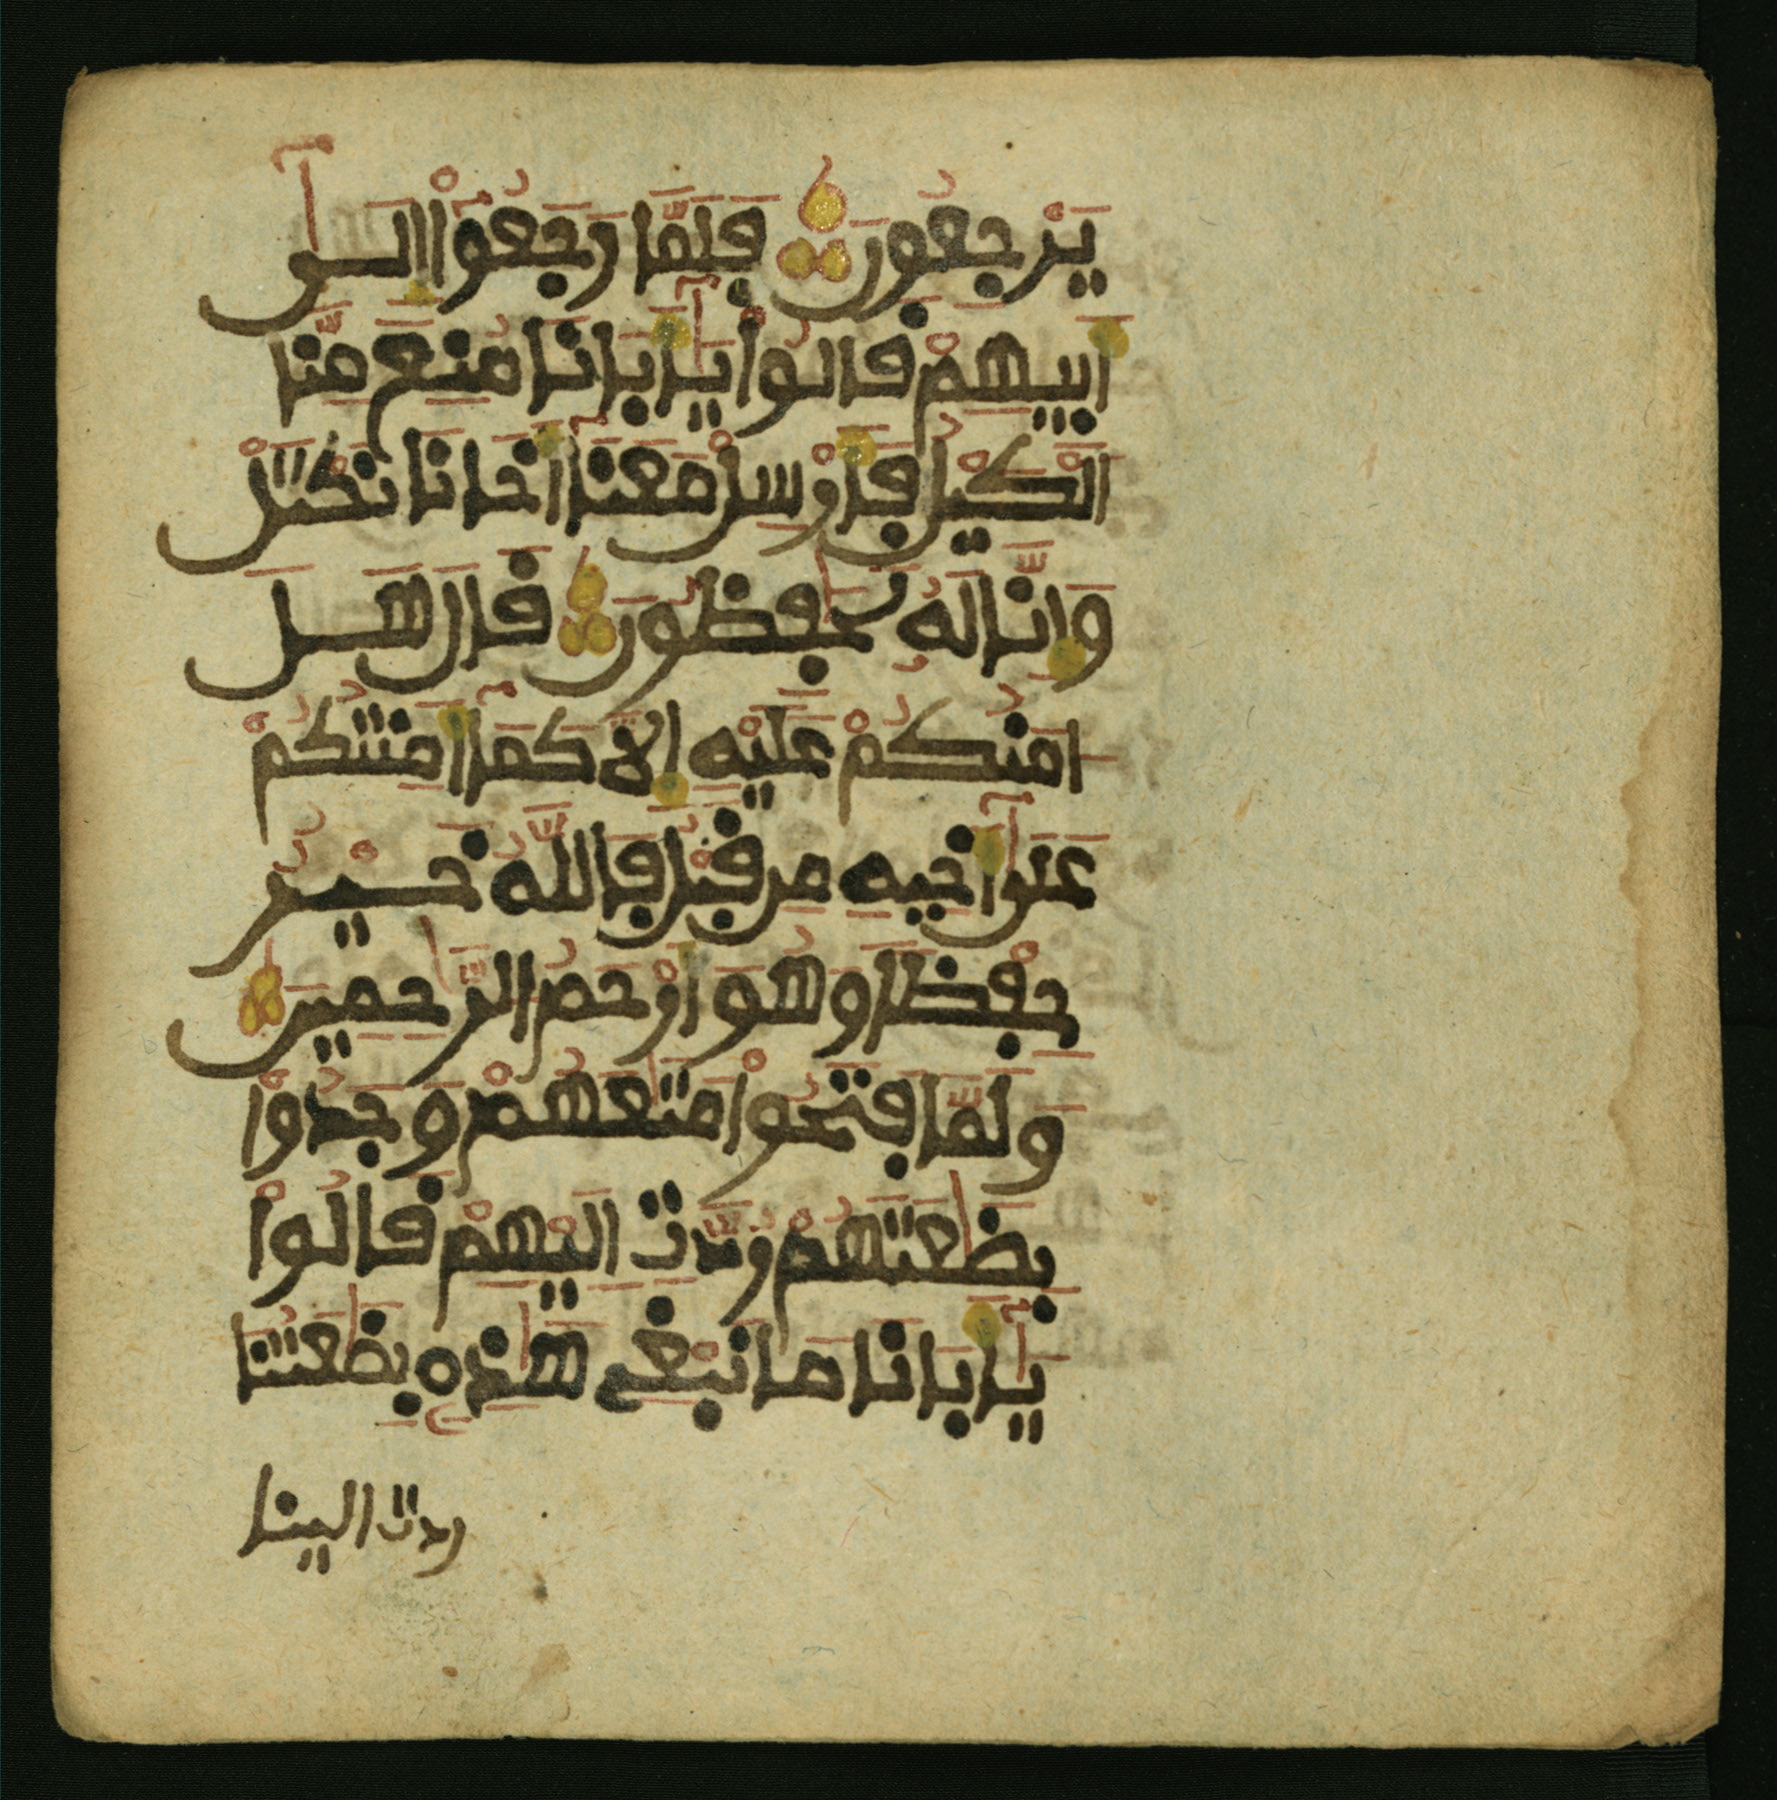 يَرْجِعُونَ فَلَمَّا رَجَعُوٓاْ إِلَىٰٓ
أَبِيهِمْ قَالُواْ يَٰٓأَبَانَا مُنِعَ مِنَّا
ٱلْكَيْلُ فَأَرْسِلْ مَعَنَآ أَخَانَا نَكْتَلْ
وَإِنَّا لَهُۥ لَحَٰفِظُونَ قَالَ هَلْ
ءَامَنُكُمْ عَلَيْهِ إِلَّا كَمَآ أَمِنتُكُمْ
عَلَىٰٓ أَخِيهِ مِن قَبْلُ فَٱللَّهُ خَيْرٌ
حِفْظًا وَهُوَ أَرْحَمُ ٱلرَّٰحِمِينَ
وَلَمَّا فَتَحُواْ مَتَٰعَهُمْ وَجَدُواْ
بِضَٰعَتَهُمْ رُدَّتْ إِلَيْهِمْ قَالُواْ
يَٰٓأَبَانَا مَا نَبْغِے هَٰذِهِۦ بِضَٰعَتُنَا
ردت الينا